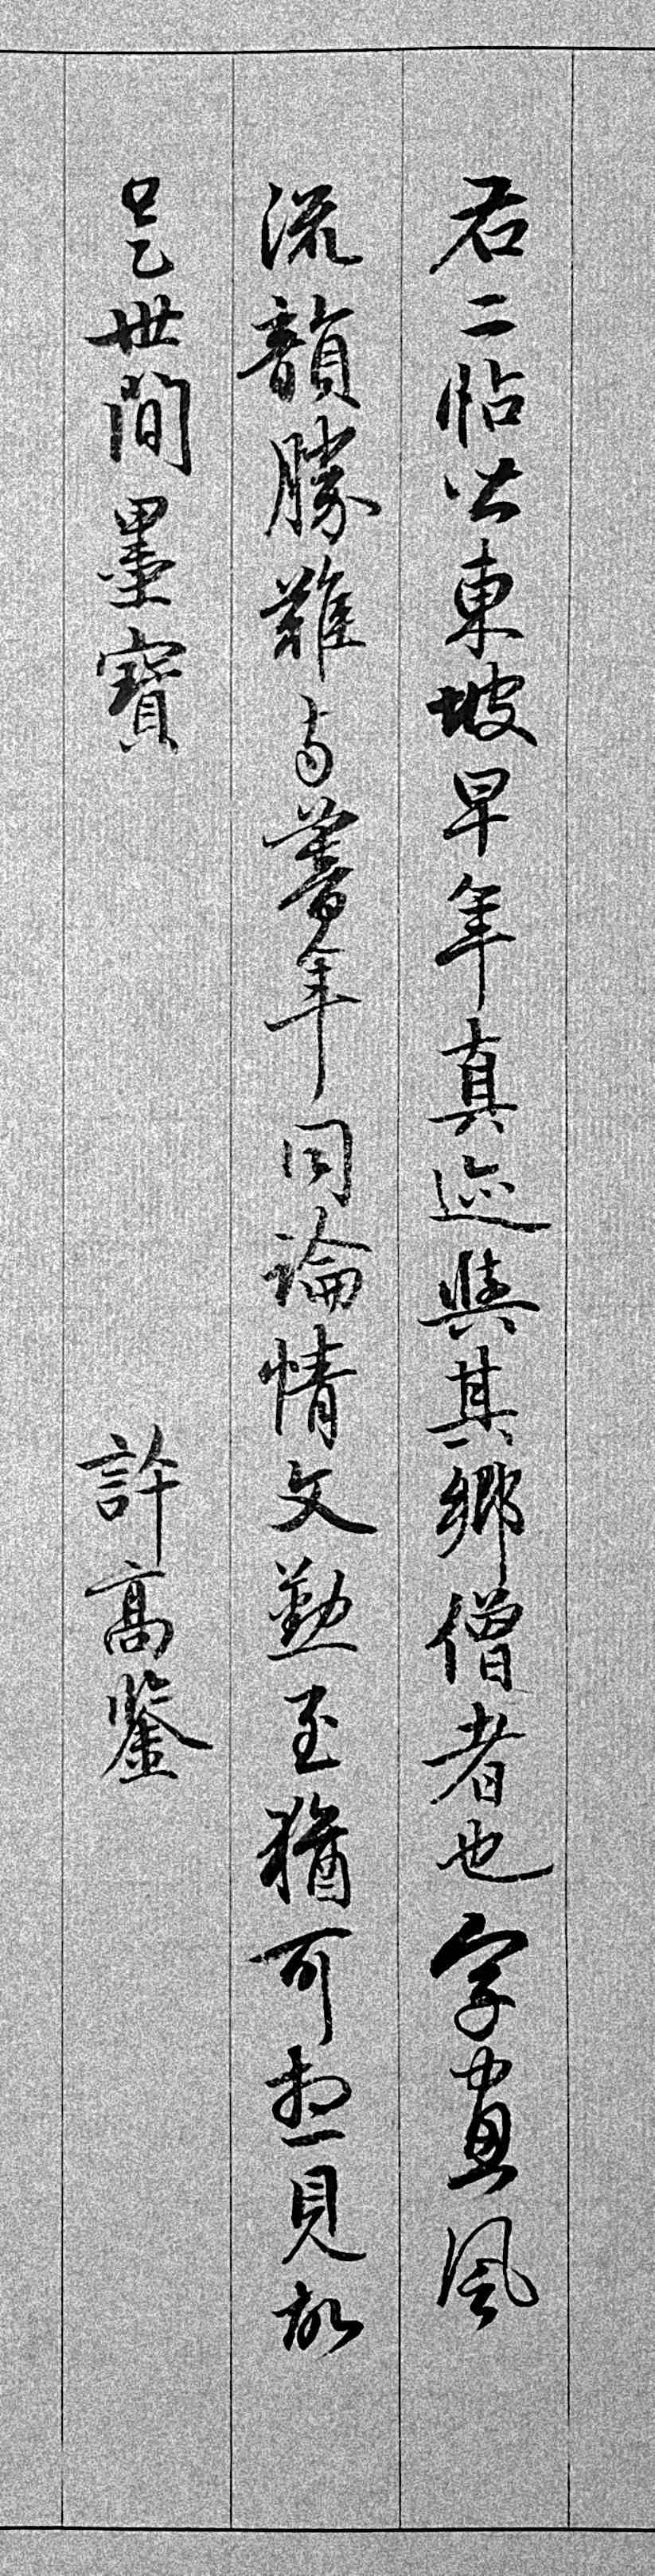 右二帖皆東坡早年真迹與其鄉僧者也字畫風
流韻勝難与暮年同論情文勤至猶可想見故
是世間墨寶　許高鑒